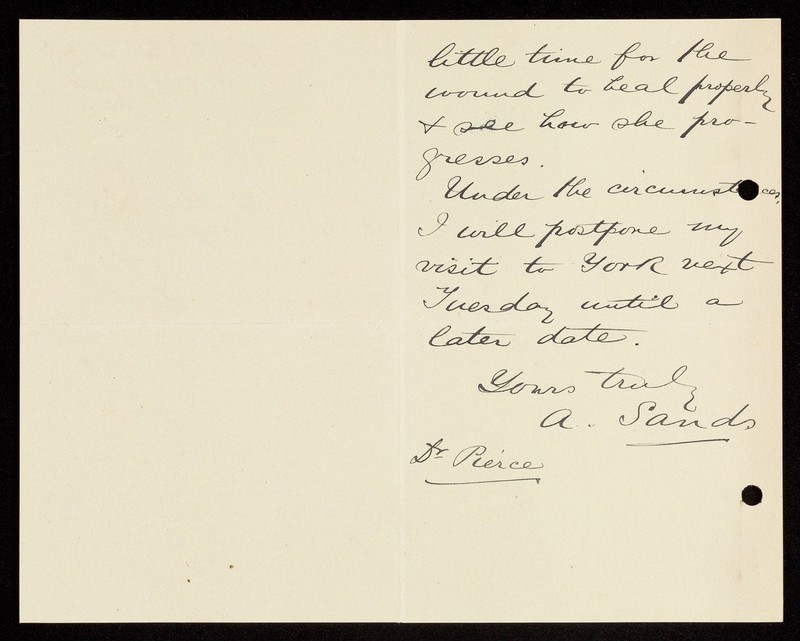 little time for the
wound to heal properly
& see how she pro-
gresses.
Under the circumstances,
I will postpone my
visit to York next
Tuesday until a
later date.
Yours truly
A. Sands
Dr Pierce